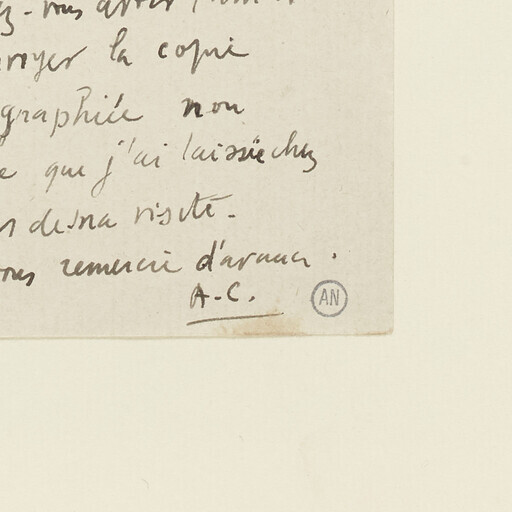 -vous
la copie
graphiée non
que j'ai laissée chez
de ma visite.
vous remercie d'avance.
A-C.
AN